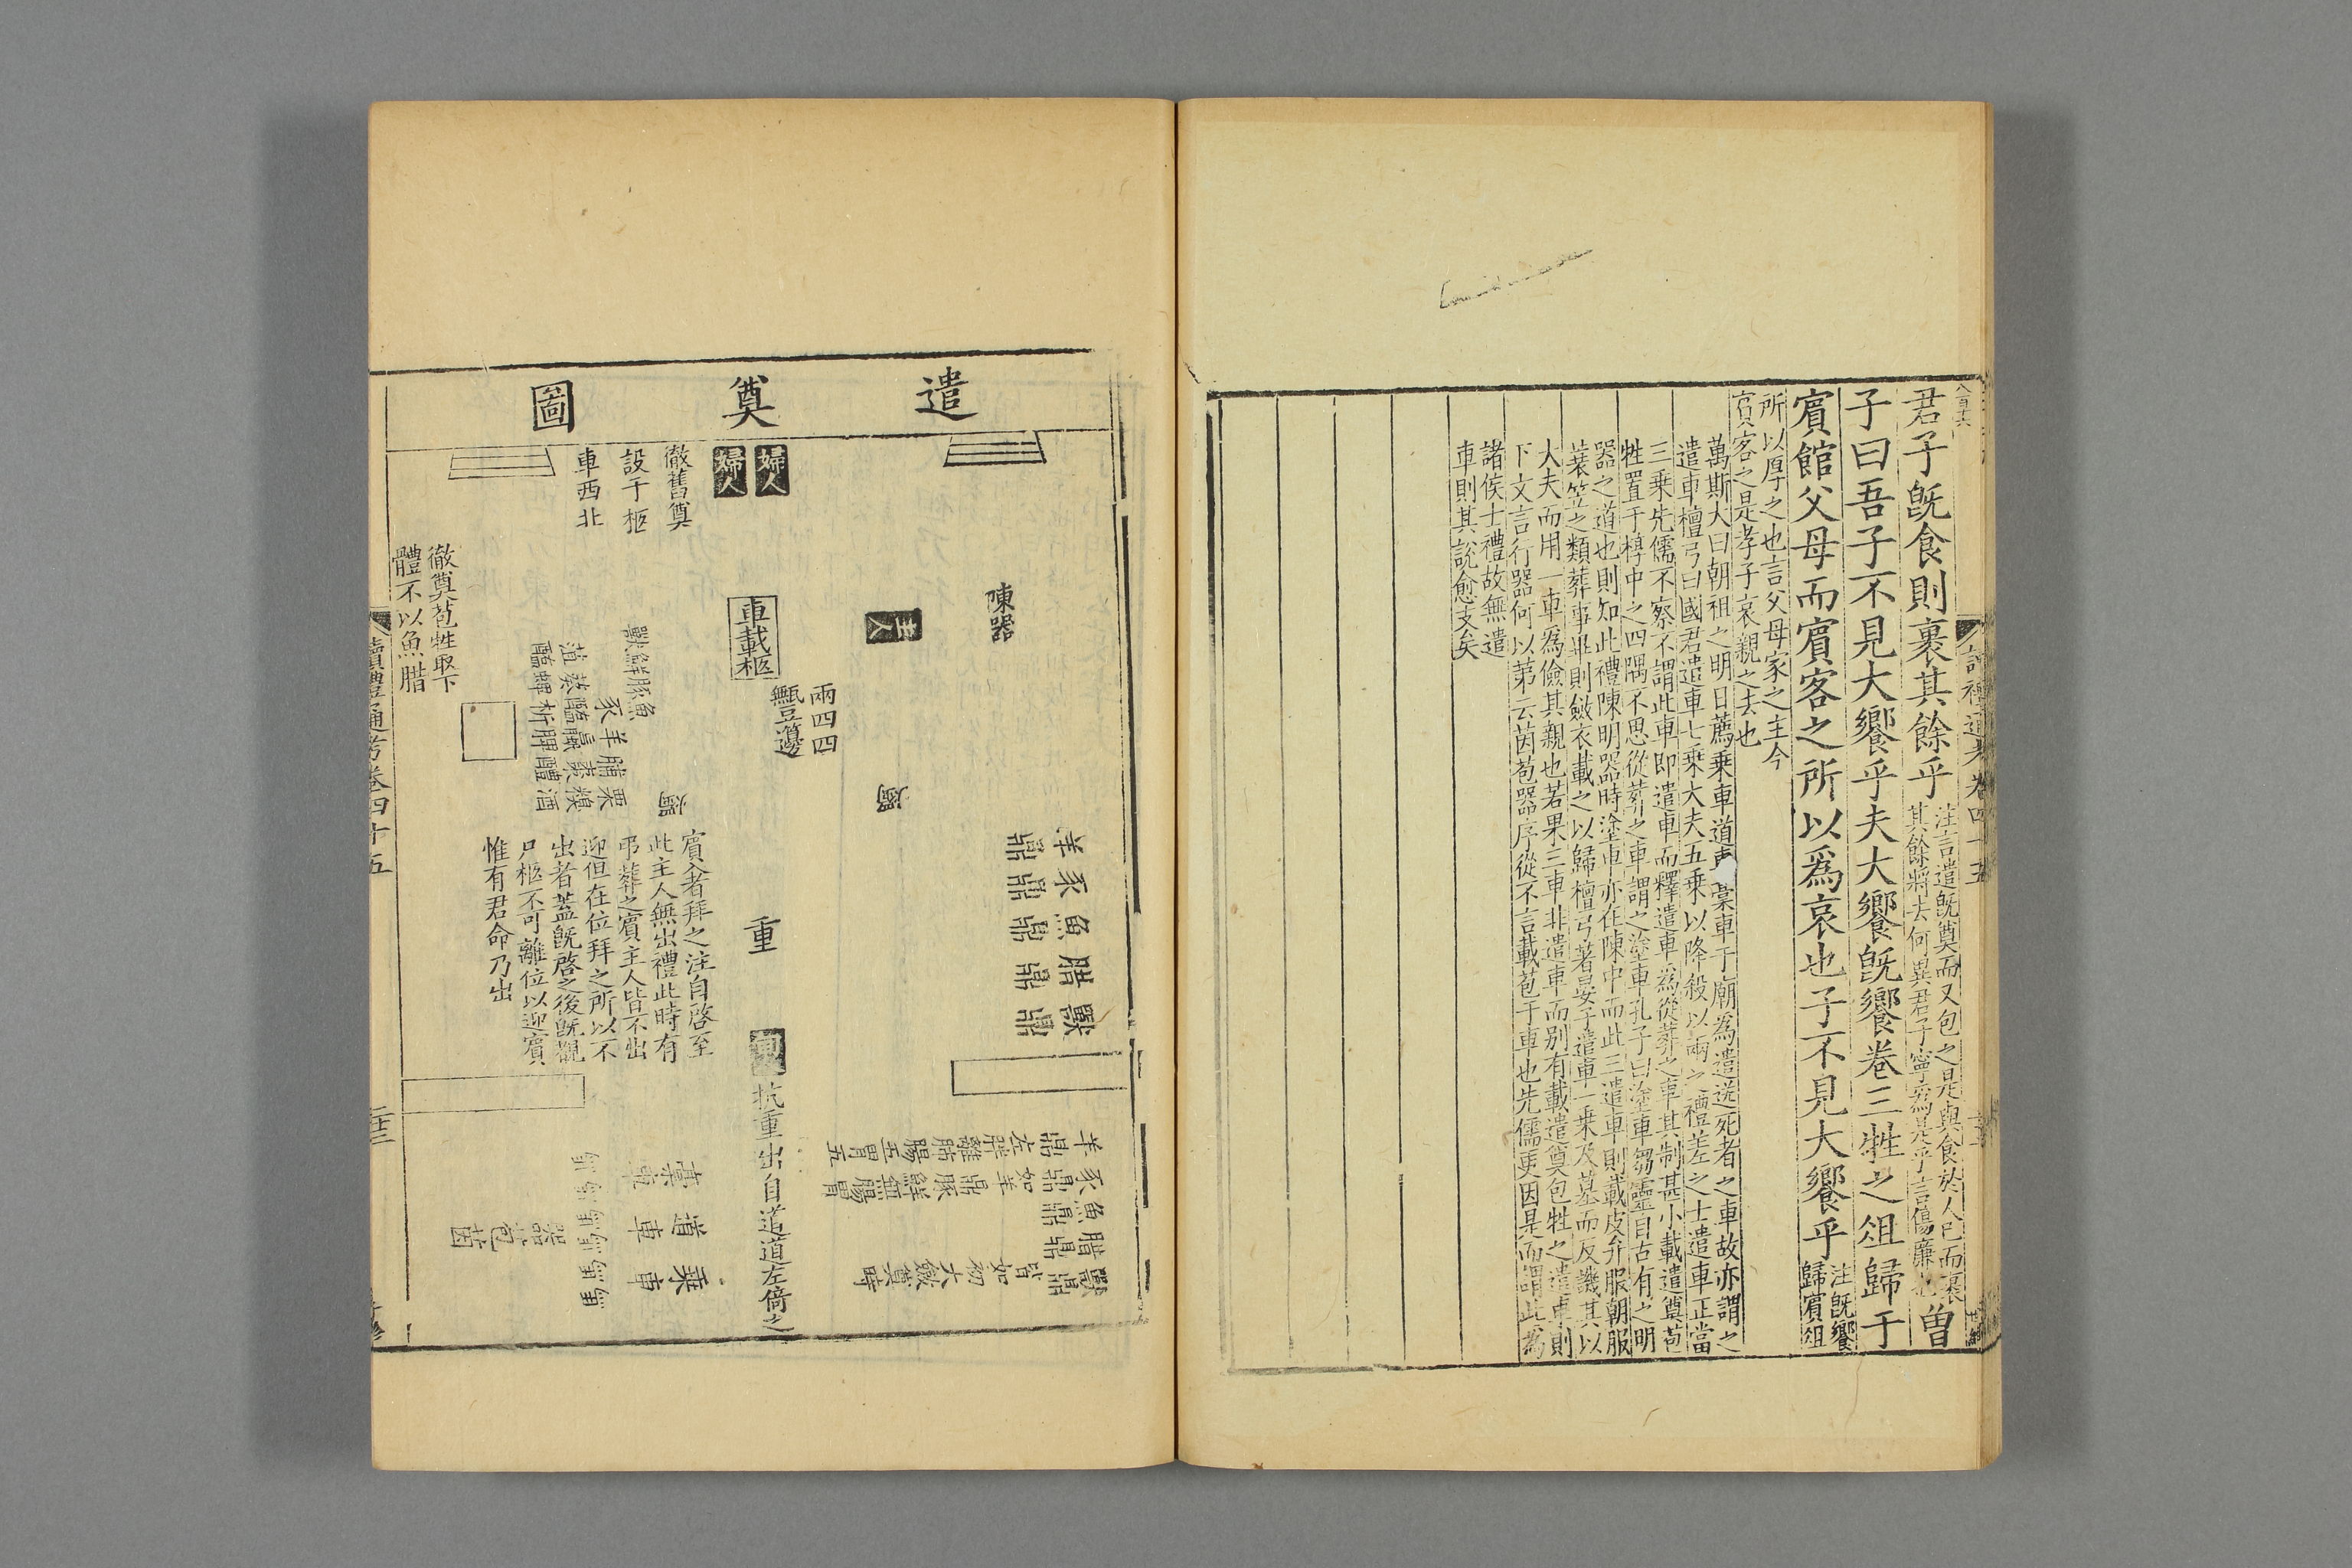 君子旣食則裹其餘乎
注言遣旣奠而又包之是與食於人已而裹
其餘將去何異君子寧爲是乎言傷廉也
曽
子曰吾子不見大饗乎夫大饗旣饗卷三牲之俎歸于
賔館父母而賔客之所以爲哀也子不見大饗乎
注旣饗
歸賔俎
所以厚之也言父母家之主今
賔客之是孝子哀親之去也
萬斯大曰朝祖之明日薦乘車道車槀車于廟爲遣送死者之車故亦謂之
遣車檀弓曰國君遣車七乘大夫五乘以降殺以兩之禮差之士遣車正當
三乘先儒不察不謂此車即遣車而釋遣車爲從葬之車其制甚小載遣奠苞
牲置于椁中之四隅不思從葬之車謂之塗車孔子曰塗車芻靈自古有之明
器之道也則知此禮陳明器時塗車亦在陳中而此三遣車則載皮弁服朝服
蓑笠之類葬事畢則斂衣載之以歸檀弓著晏子遣車一乘及墓而反譏其以
大夫而用一車為儉其親也若果三車非遣車而别有載遣奠包牲之遣車則
下文言行器何以第云茵苞器序從不言載苞于車也先儒更因是而謂此為
諸侯士禮故無遣
車則其說愈支矣
讀禮通考卷四十五
遣奠圖
婦人
婦人
徹舊奠
設于柩
車西北
陳器
主人
車載柩
兩四四
甒豆籩
獸鮮豚魚
豕羊脯栗
葅葵醢蠃棗糗
醢蜱析脾醴酒
徹奠苞牲取下
體不以魚腊
羊鼎
豕鼎
魚鼎
腊鼎
獸鼎
重
賔入者拜之注自啓至
此主人無出禮此時有
弔葬之賔主人皆不出
迎但在位拜之所以不
出者葢旣啓之後旣覩
尸柩不可離位以迎賔
惟有君命乃出
抗重出自道道左倚之
羊鼎左胖髀腊腸五胃五
豕鼎如羊鼎豚鮮無腸胃
魚鼎
腊鼎
獸鼎皆如初大斂奠時
乗車
道車
槀車
茵苞器
讀禮通考卷四十五